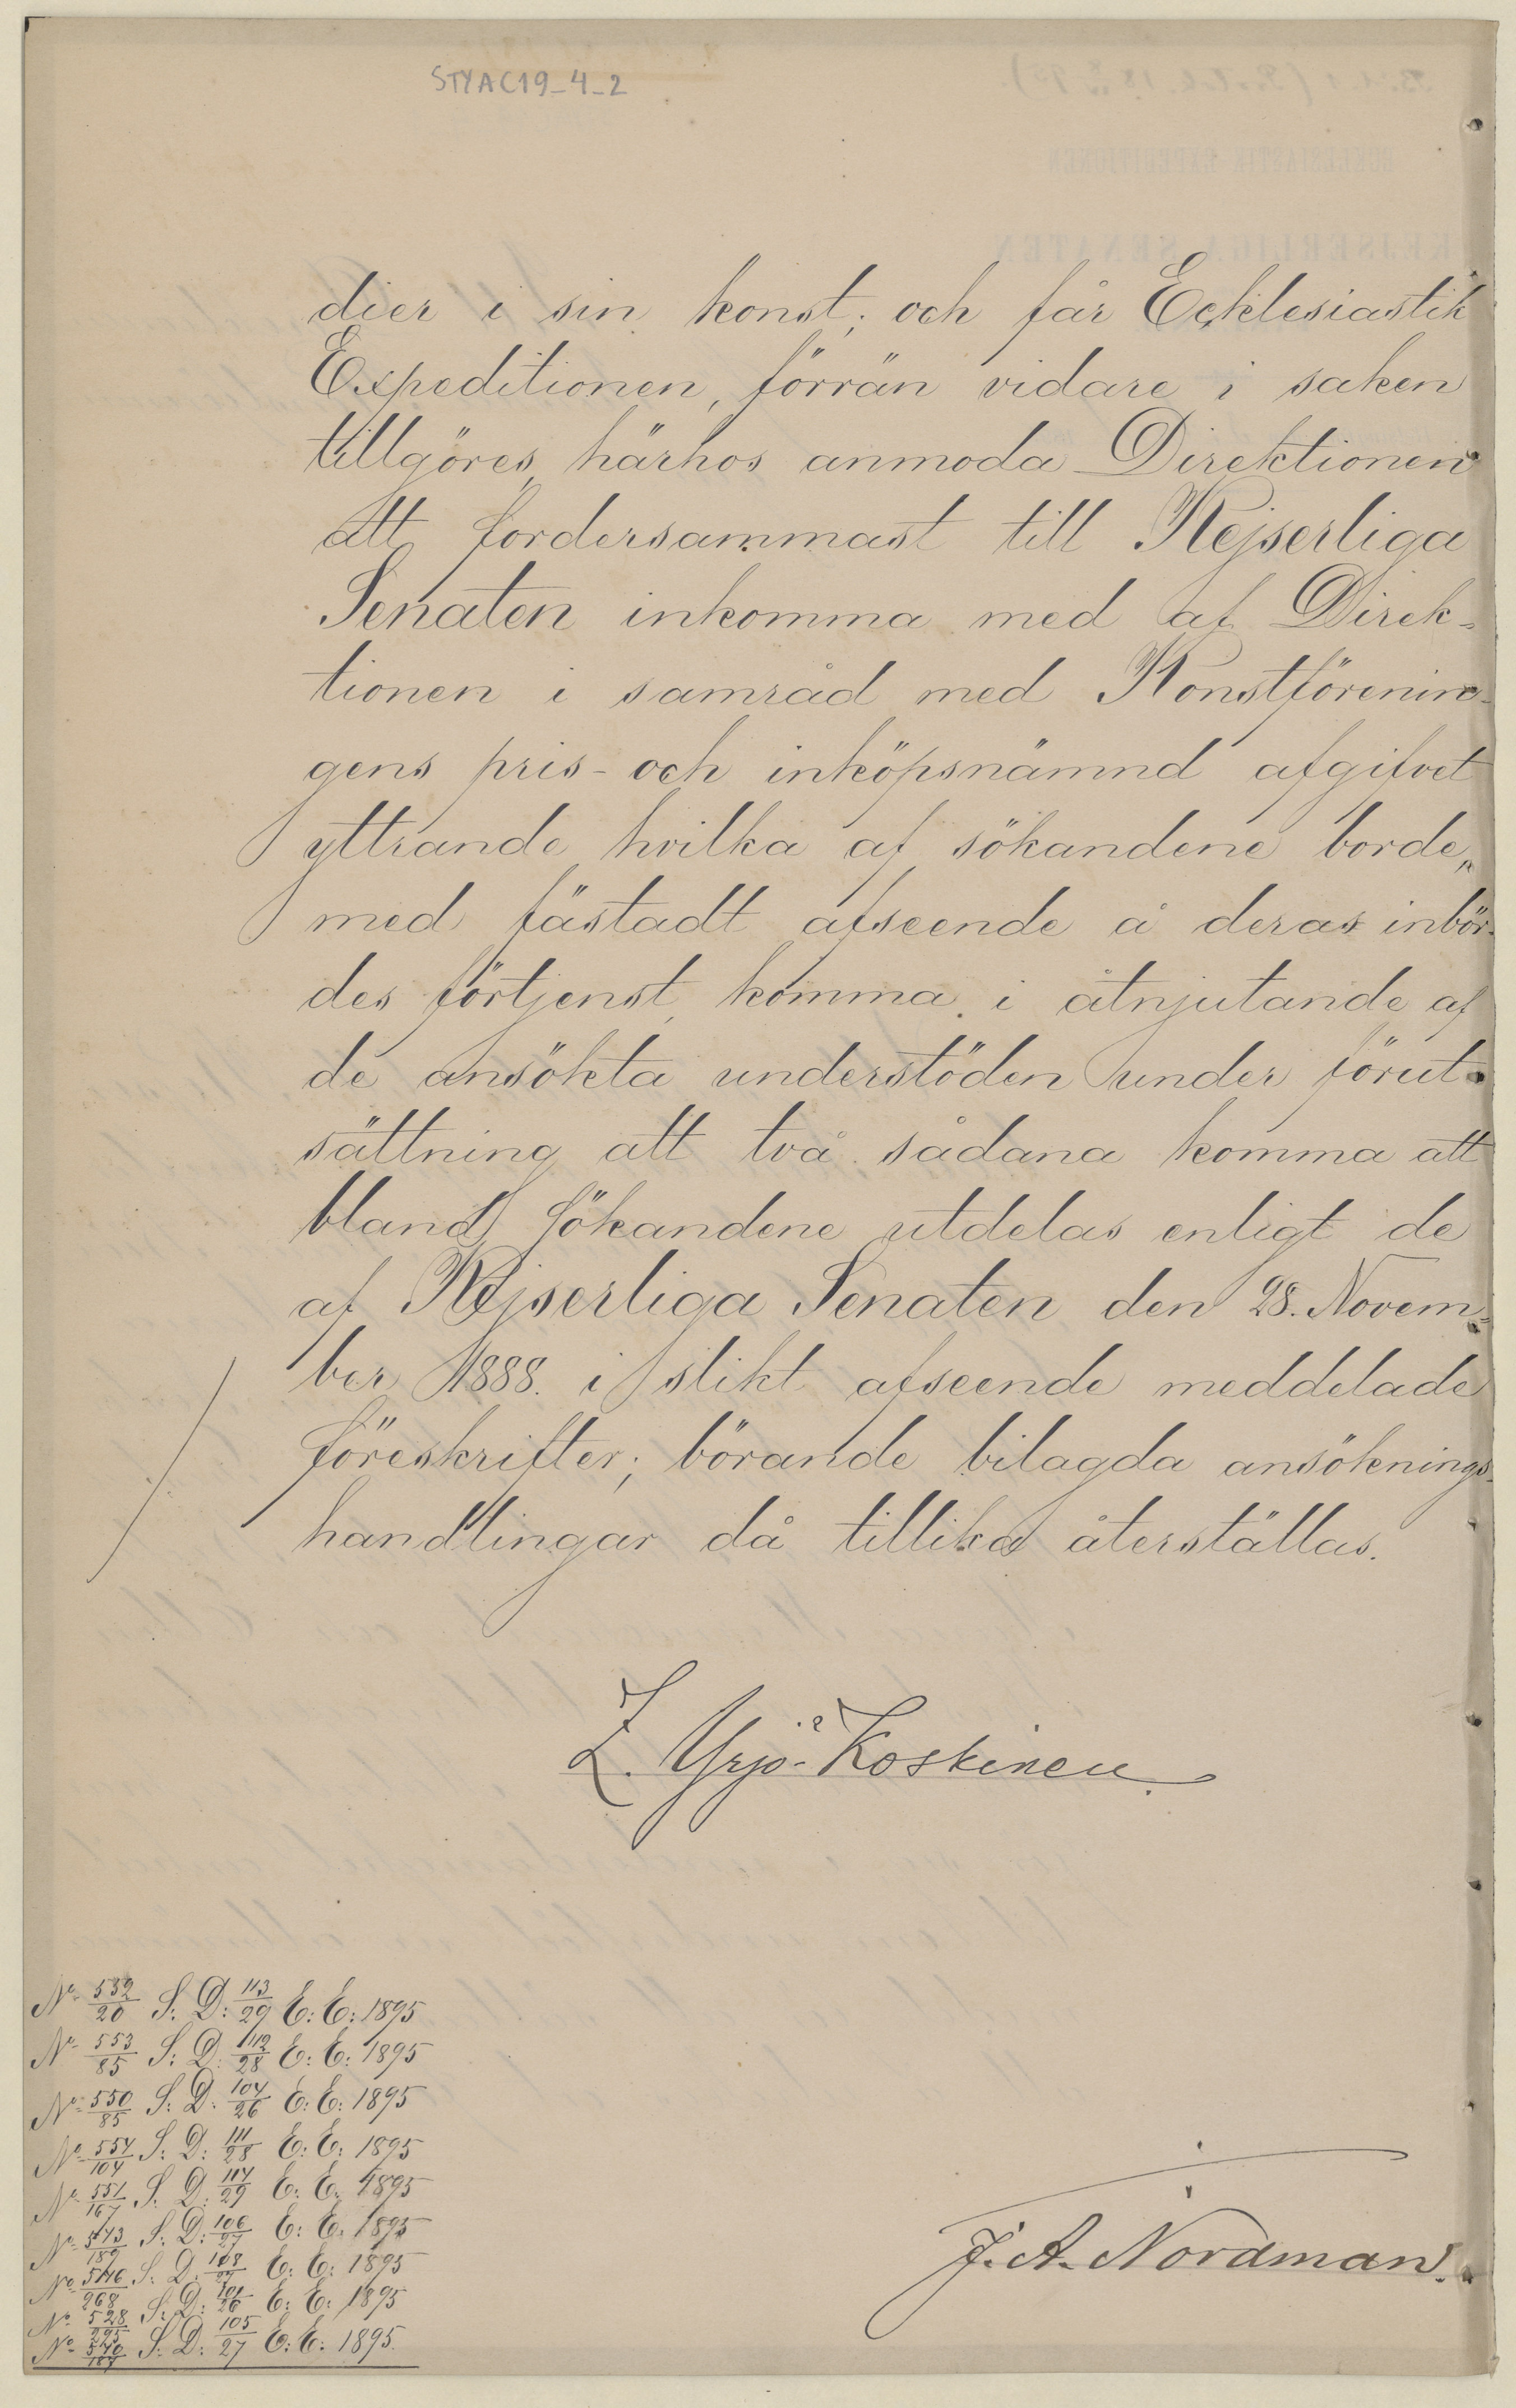 STYA C19_4_2
dier i sin konst; och får Ecklesiastik
Expeditionen, förrän vidare i saken
tillgöres, härhos anmoda Direktionen
att fordersammast till Kejserliga
Senaten inkomma med af Direk-
tionen i samråd med Konstförenin-
gens pris- och inköpsnämnd afgifvet
yttrande hvilka af sökandene borde,
med fästadt afseende å deras inbör-
des förtjenst, komma i åtnjutande af
de ansökta understöden under förut-
sättning att två sådana komma att
bland sökandene utdelas enligt de
af Kejserliga Senaten den 28. Novem-
ber 1888. i slikt afseende meddelade
föreskrifter; börande bilagda ansöknings-
handlingar då tillika återställas.
Z. Yrjö-Koskinen
No 532/20 S: D: 113/29 E: E: 1895
No 553/85 S: D: 112/28 E: E: 1895
No 550/85 S: D: 104/26 E: E: 1895
No 554/104 S: D: 111/28 E: E: 1895
No 551/167 S: D: 114/29 E: E: 1895
No 543/189 S: D: 106/27 E: E: 1895
No 546/268 S: D: 108/27 E: E: 1895
No 528/295 S: D: 101/26 E: E: 1895
No 540/187 S: D: 105/27 E: E: 1895.
J. A. Nordman.